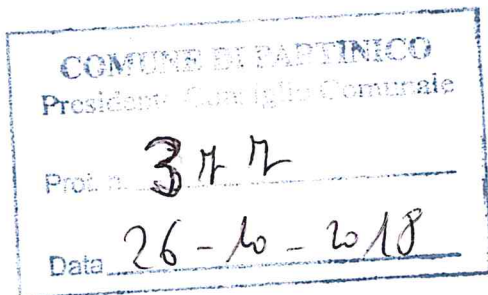 COMUNE DI PARTINICO
Presidente Consiglio Comunale
Prot. n. 377
Data 26-10-2018